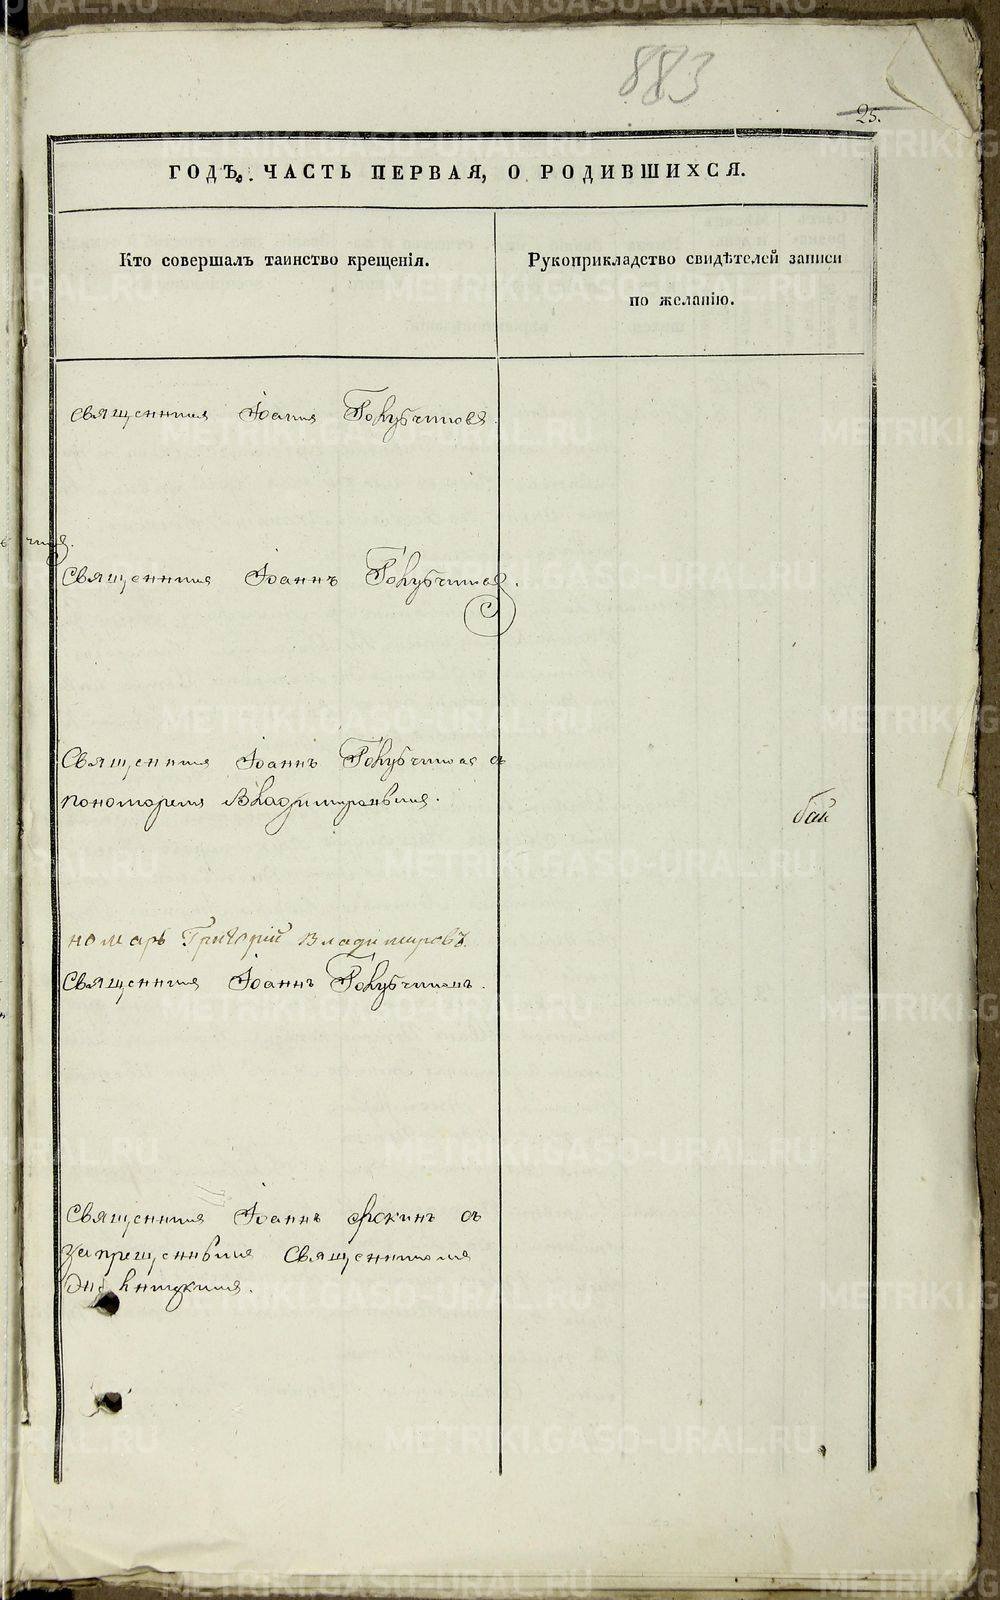 883
25.
ГОДЪ. ЧАСТЬ ПЕРВАЯ, О РОДИВШИХСЯ.
Кто совершалъ таинство крещенія.
Рукоприкладство свидѣтелей записи
по желанію.
Священникъ Іоаннъ Голубчиковъ
Священникъ Іоаннъ Голубчиковъ.
Священникъ Іоаннъ Голубчиковъ съ
пономаремъ
номарь Григорій Владимировъ
Священникъ Іоаннъ Голубчиковъ.
Священникъ Іоаннъ Фокинъ съ
запрещеннымъ Священникомъ
METRIKI.GASO-URAL.RU